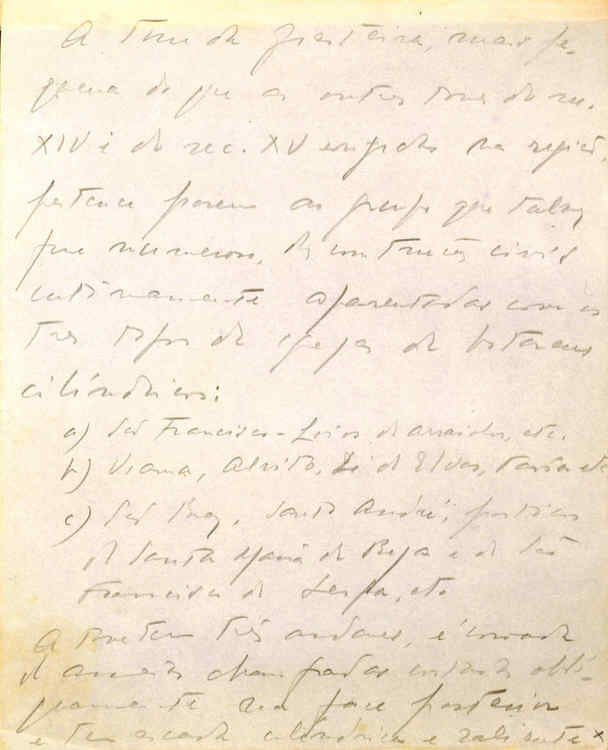 A torre da Giesteira, mais pe-
quena do que as outras torres do sec.
XIV e do sec. XV erguidas na região,
pertence porem ao grupo que talvez
fosse numeroso, de construções civis
intimamente aparentadas com os
tres tipos de igrejas de botareus
cilíndricos:
a) São Francisco - Loios de Arraiolos, etc.
b) Viana, Alvito, Sé de Elvas, etc
c) São Braz, Santo André, 
de Santa Maria de Beja e de São
Francisco de Serpa, etc
A torre tem três andares, é coroada
de ameias chanfradas cortadas obli-
quamente na face posterior
e tem escada cilíndrica e saliente x